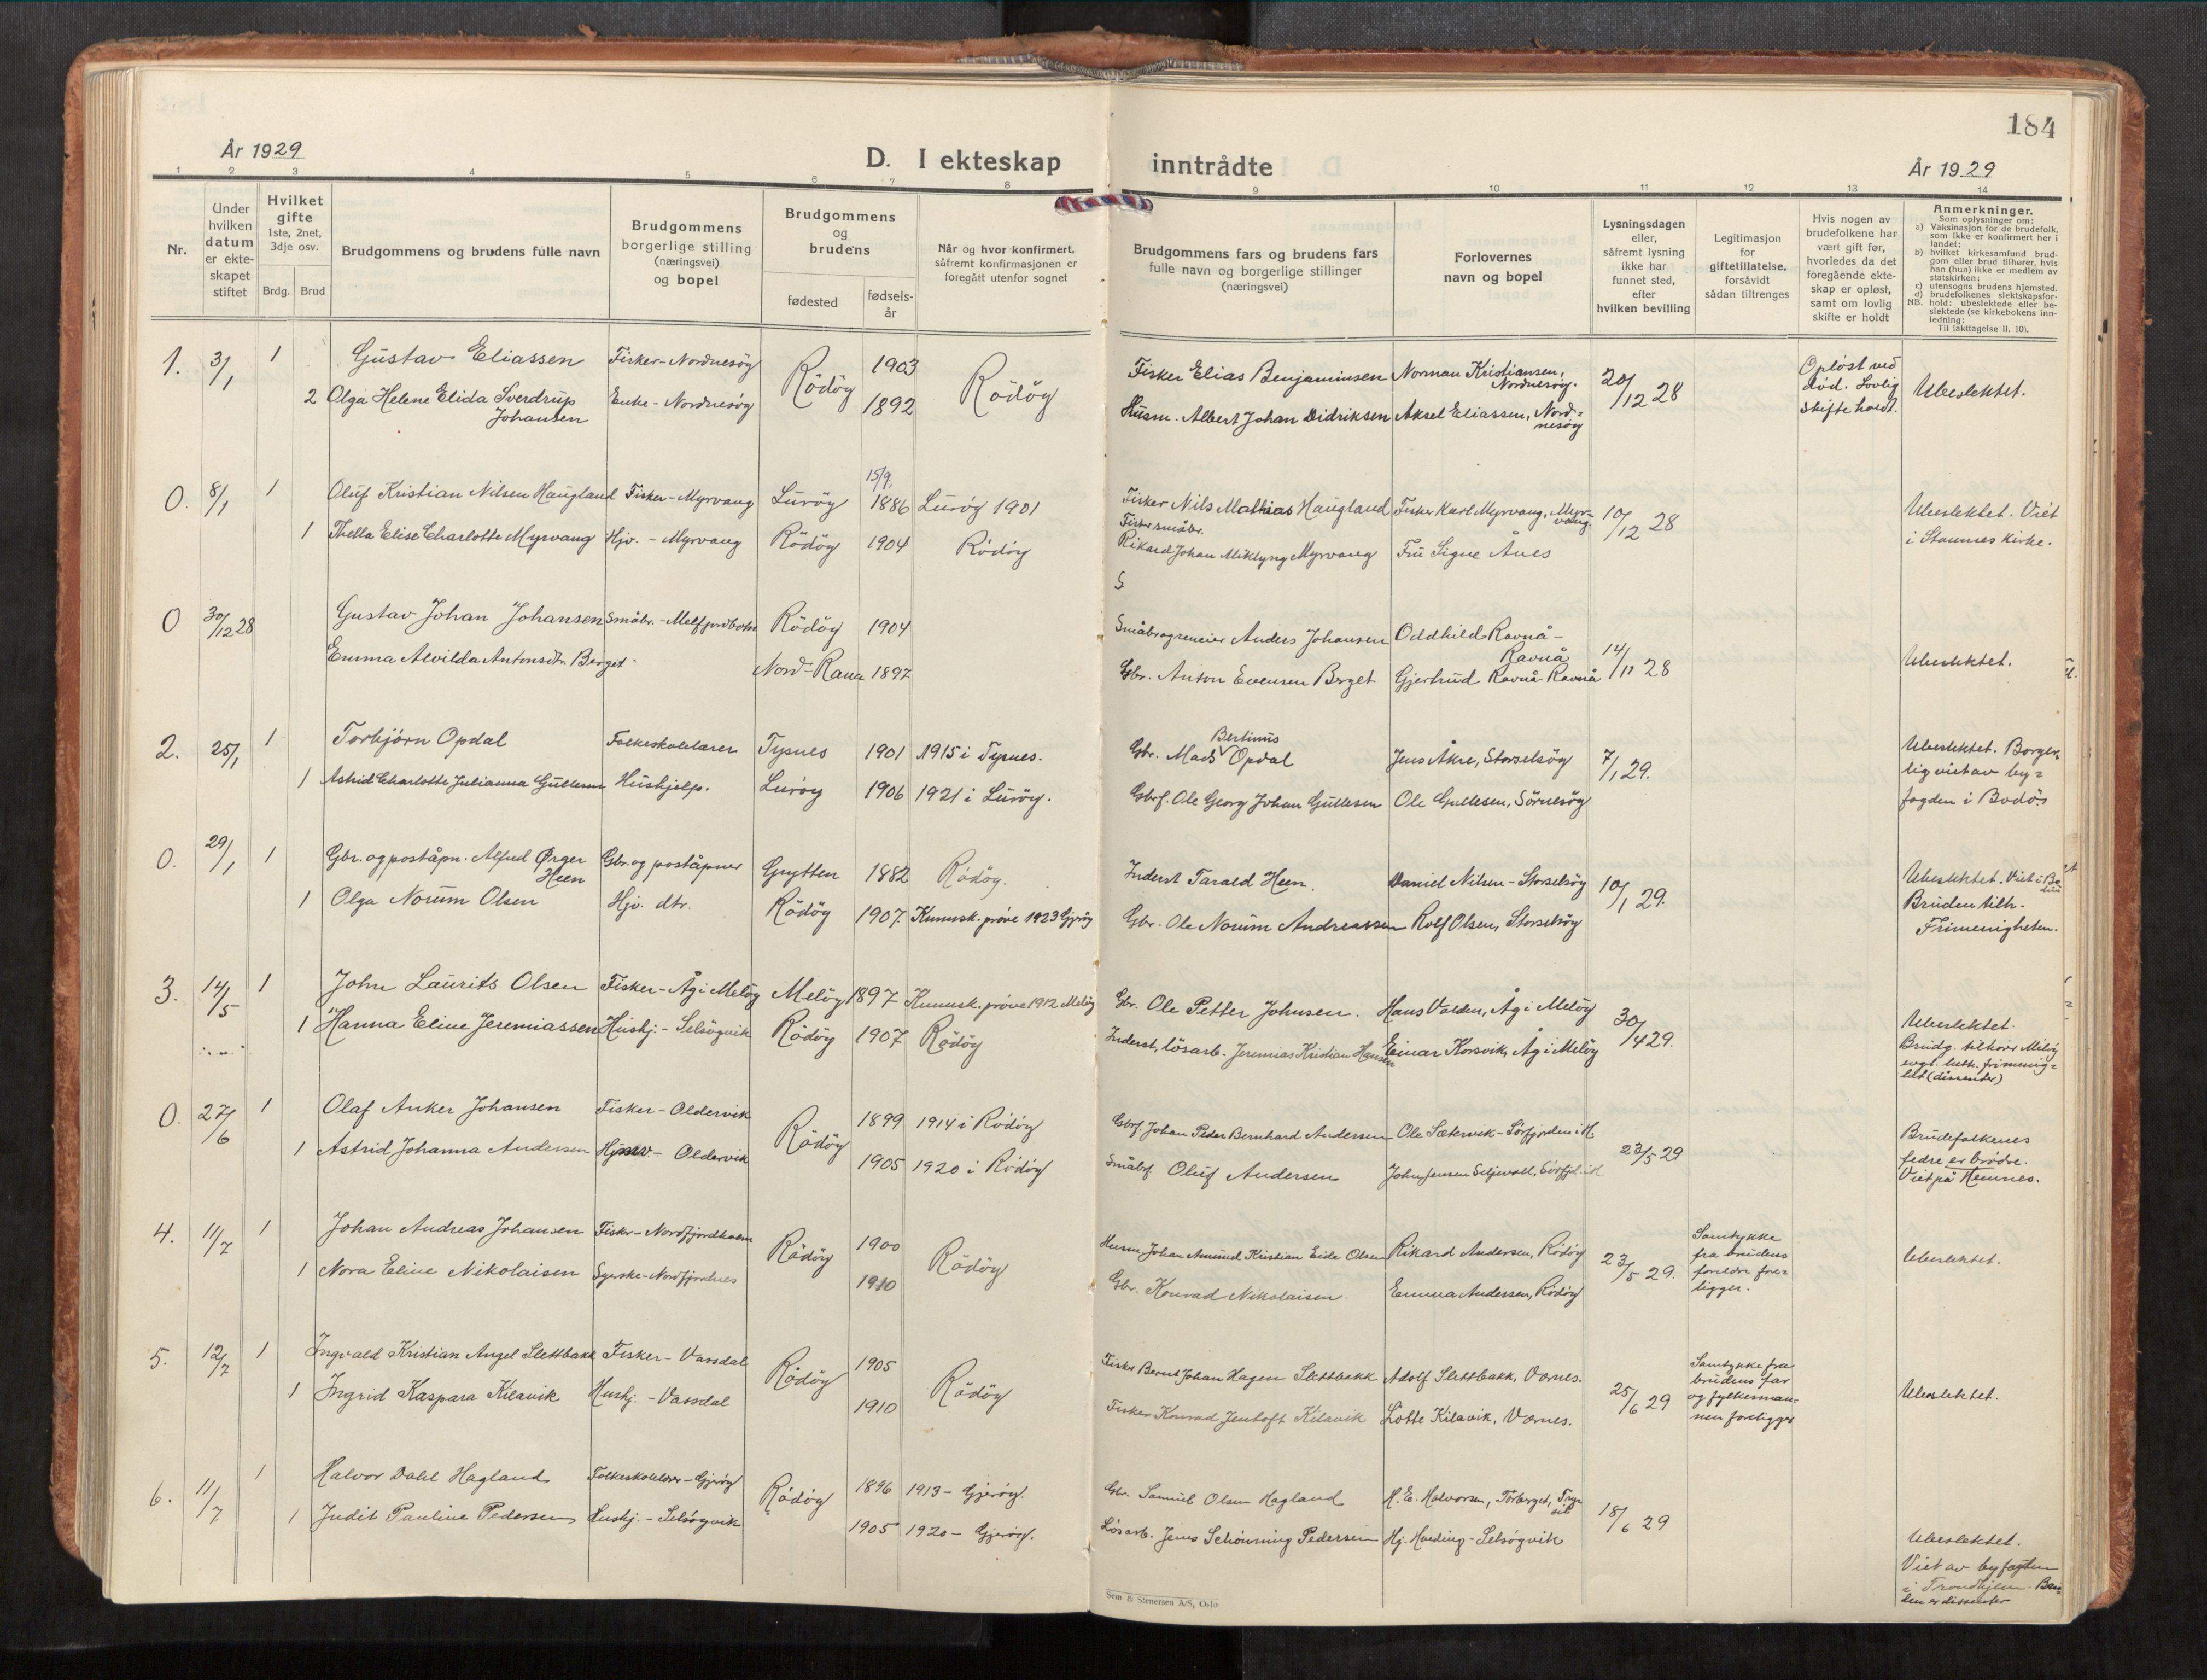 184
År 1929
D. I ekteskap
inntrådte
År 1929
1 2 3 4 5 6 7 8 9 10 11 12 13 14
Nr.
Under hvilken datum er ekteskapet stiftet
Hvilket gifte 1ste, 2net, 3dje osv.
Brdg. Brud
Brudgommens og brudens fulle navn
Brudgommens borgerlige stilling (næringsvei) og bopel
Brudgommens og brudens
fødested
fødselsår
Når og hvor konfirmert. såfremt konfirmasjonen er foregått utenfor sognet
Brudgommens fars og brudens fars fulle navn og borgerlige stillinger (næringsvei)
Forlovernes navn og bopel
Lysningsdagen eller, såfremt lysning ikke har funnet sted, efter hvilken bevilling
Legitimasjon for giftetillatelse, forsåvidt sådan tiltrenges
Hvis nogen av brudefolkene har vært gift før, hvorledes da det foregående ekteskap er opløst, samt om lovlig skifte er holdt
Anmerkninger.
Som oplysninger om:
a) Vaksinasjon for de brudefolk, som ikke er konfirmert her i landet;
b) hvilket kirkesamfund brudgom eller brud tilhører, hvis han (hun) ikke er medlem av statskirken;
c) utensogns brudens hjemsted.
d) brudefolkenes slektskapsforhold: ubeslektede eller beslektede (se kirkebokens innledning:
NB.
Til iakttagelse II. 10).
1. 3/1 1 Gustav Eliassen Fisker - Nordnesöy Rödöy 1903 Rödöy Fisker Elias Benjaminsen Norman Kristiansen, Nordnesöy. 20/12 28 Opløst ved död. Lovlig skifte holdt. Ubeslektet.
2 Olga Helene Elida Sverdrup Johansen Enke - Nordnesöy 1892 Husm. Albert Johan Didriksen Aksel Eliassen, Nordnesöy
0. 8/1 1 Oluf Kristian Nilsen Haugland Fisker - Myrvang Luröy 15/9 1886 Luröy 1901 Fisker Nils Mathias Haugland Fisker Karl Myrvang, Myrvang 10/12 28 Ubeslektet. Viet i Stamnes kirke.
1 Thella Elise Charlotte Myrvang Hjv. - Myrvang Rödöy 1904 Rödöy Fisker småbr. Rikard Johan Miklyng Myrvang Fru Signe Ånes
0 30/12 28 Gustav Johan Johansen Småbr. - Melfjordbotn Rödöy 1904 Anders Johansen Oddhild Ravnå - Ravnå 14/11 28 Ubeslektet.
Emma Alvilda Antonsdtr. Berget Nord-Rana 1897 Gbr. Anton Evensen Berget Gjertrud Ravnå Ravnå
2. 25/1 1 Torbjörn Opdal Folkeskolelærer Tysnes 1901 1915 i Tysnes. Gbr. Mads Bertinus Opdal Jens Åkre, Storselsöy 7/1 29. Ubeslektet. Borgerlig viet av byfogden i Bodö.
1 Astrid Charlotte Julianna Gullesen Hushjelp. Luröy 1906 1921 i Luröy. Gbrf. Ole Georg Johan Gullesen Ole Gullesen, Sörnesöy
0. 29/1 1 Gbr. og poståpn. Alfred Ørger Heen Gbr. og poståpner Grytten 1882 Rödöy. Inderst Tarald Heen. Daniel Nilsen - Storselsöy 10/1 29. Ubeslektet. Viet i Bodin Bruden tilh. Frimenigheten.
1 Olga Norum Olsen Hjv. dtr. Rödöy 1907 Kunnsk. pröve 1923 Gjeröy Gbr. Ole Norum Andreassen Rolf Olsen, Storselsöy
3. 14/5 1 John Laurits Olsen Fisker - Åg i Melöy Melöy 1897 Kunnsk. pröve 1912 Melöy Gbr. Ole Petter Johnsen. Hans Valden, Åg i Melöy 30/4 29. Ubeslektet. Brudg. tilhörer Melöy evgl. luth. frimenighet (dissenter)
1 Hanna Eline Jeremiassen Hushj. - Selsöyvik Rödöy 1907 Rödöy Inderst, lösarb. Jeremias Kristian Hansen Einar Korsvik, Åg i Melöy
0. 27/6 1 Olaf Anker Johansen Fisker - Oldervik Rödöy 1899 1914 i Rödöy Gbrf. Johan Peder Bernhard Andersen Ole Sætervik - Sörfjorden i H 23/5 29 Brudefolkenes fedre er brödre. Viet på Hemnes.
1 Astrid Johanna Andersen - Oldervik 1905 1920 i Rödöy Småbrf. Oluf Andersen John Jensen
4. 11/7 1 Johan Andreas Johansen Fisker - Nordfjordholm Rödöy 1900 Rödöy Husm. Johan Amund Kristian Eide Olsen Rikard Andersen, Rödöy 23/5 29. Samtykke fra brudens foreldre foreligger. Ubeslektet.
1 Nora Eline Nikolaisen Syerske - Nordfjordnes 1910 Gbr. Konrad Nikolaisen Emma Andersen, Rödöy
5. 12/7 1 Ingvald Kristian Angel Slettbakk Fisker - Vassdal Rödöy 1905 Rödöy Fisker Bernt Johan Hagen Slettbakk Adolf Slettbakk, Værnes. 25/6 29 Samtykke fra brudens far og fylkesmannen foreligger Ubeslektet.
1 Ingrid Kaspara Kilavik Hushj. - Vassdal 1910 Fisker Konrad Jentoft Kilavik Lotte Kilavik, Værnes.
6. 11/7 1 Halvor Dahl Hagland Folkeskolelærer - Gjeröy Rödöy 1896 1913 - Gjeröy. Gbr. Samuel Olsen Hagland H. E. Halvorsen, Törberget, Trysil 18/6 29 Ubeslektet. Viet av byfogden i Trondhjem. Bruden er dissenter
1 Judit Pauline Pedersen Hushj. - Selsöyvik 1905 1920 - Gjeröy. Lösarb. Jens Schönning Pedersen Hj. Harding - Selsöyvik
Sem & Stenersen A/S, Oslo